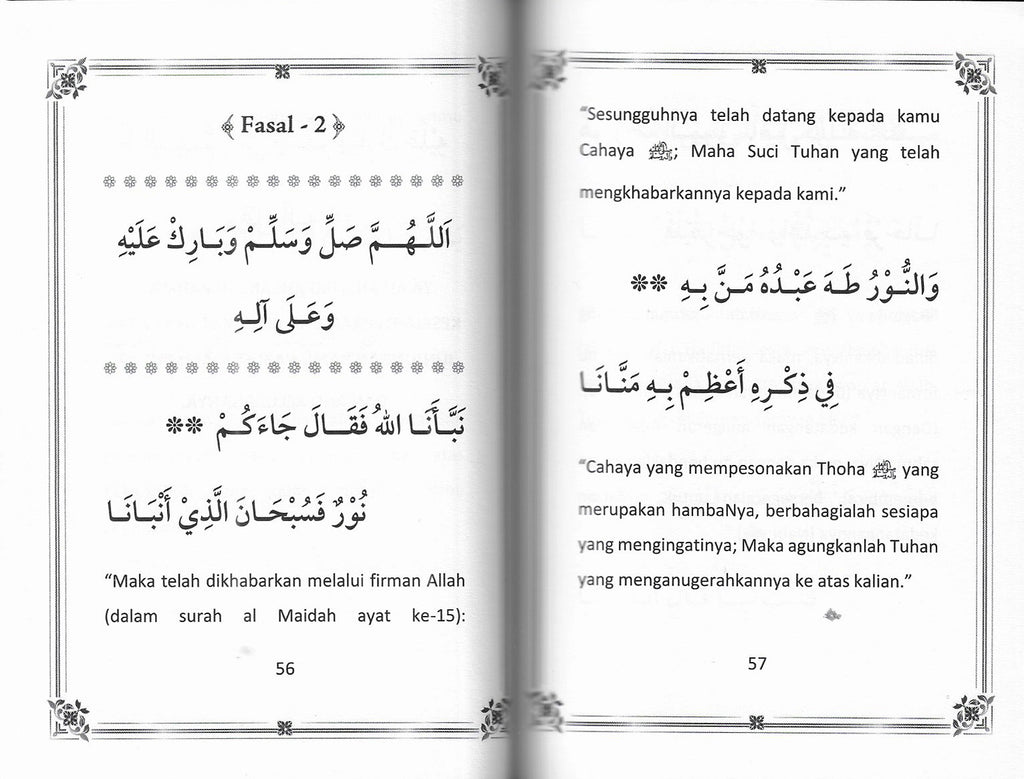 Fasal - 2
اَللَّـهُـمَّ صَلِّ وَسَلِّـمْ وَبَـارِكْ عَلَيْهِ
وَعَـلَى آلِـهِ
نَبَّـأَنَـا اللهُ فَقَـالَ جَاءَكُـمْ **
نُوْرٌ فَسُبْحَـانَ الَّذِيْ أَنْبَـانَـا
“Maka telah dikhabarkan melalui firman Allah
(dalam surah al Maidah ayat ke-15):
56
“Sesungguhnya telah datang kepada kamu
Cahaya ﷺ; Maha Suci Tuhan yang telah
mengkhabarkannya kepada kami.”
وَالنُّـوْرُ طَـهَ عَبْـدُهُ مَـنَّ بِـهِ **
فِي ذِكْـرِهِ أَعْظِـمْ بِـهِ مَنَّـانَـا
“Cahaya yang mempesonakan Thoha ﷺ yang
merupakan hambaNya, berbahagialah sesiapa
yang mengingatinya; Maka agungkanlah Tuhan
yang menganugerahkannya ke atas kalian.”
57